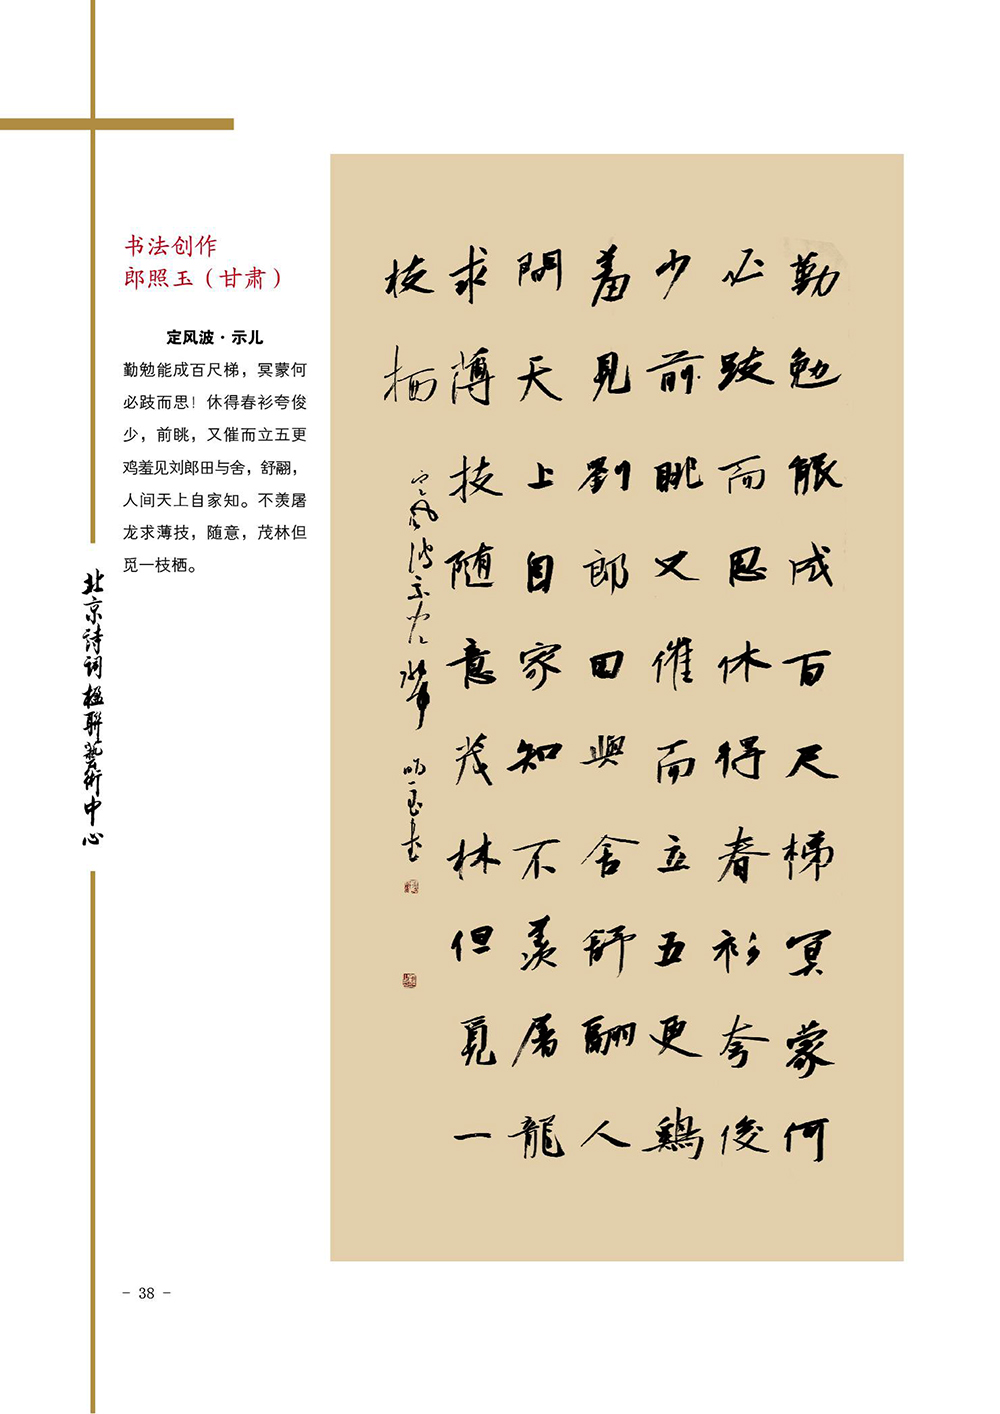 书法创作
郎照玉（甘肃）
定风波·示儿
勤勉能成百尺梯，冥蒙何
必跂而思！休得春衫夸俊
少，前眺，又催而立五更
鸡羞见刘郎田与舍，舒翮，
人间天上自家知。不羡屠
龙求薄技，随意，茂林但
觅一枝栖。
北京诗词楹联艺術中心
勤勉能成百尺梯冥蒙何
必跂而思休得春衫夸俊
少前眺又催而立五更鷄
羞见劉郎田與舍舒翮人
間天上自家知不羡屠龍
求薄技随意茂林但覓一
枝栖
定风波示儿
照玉书
- 38 -